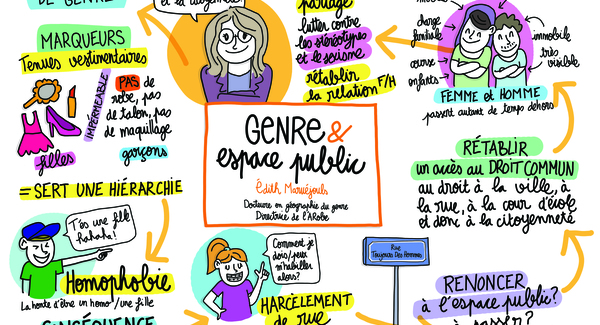 DE GENRE
MARQUEURS
Tenues vestimentaires
IMPERMÉABLE
PAS de
robe, pas
de talon, pas
de maquillage
filles
garçons
= SERT UNE HIÉRARCHIE
T'es une fille
hahaha !
Homophobie
La honte d'être un homo / une fille
et la citoyenneté
partage
lutter contre
les stéréotypes
et le sexisme
rétablir
la relation F/H
GENRE &
espace public
Édith Maruéjouls
Docteure en géographie du genre
Directrice de L'ARobe
Comment je
dois/peux
m'habiller
alors ?
HARCÈLEMENT
de rue
Rue
Toujours Des Hommes
charge
familiale
course
enfants
immobile
très
visible
FEMME et HOMME
passent autant de temps dehors
RÉTABLIR
un accès au DROIT COMMUN
au droit à la ville, à
la rue, à la cour d'école
et donc à la citoyenneté
RENONCER
à l'espace public ?
à passer ?